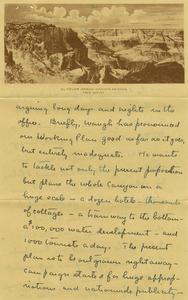 EL TOVAR GRAND CANYON ARIZONA
arguing long days and nights in the
office. Briefly, Waugh has pronounced
our Working Plan good as far as it goes,
but entirely inadequate. He wants
to tackle not only the present proposition
but plan the whole Canyon on a
huge scale - a dozen hotels - thousands
of cottages - a tramway to the bottom -
a $100,000 water development - and
1000 tourists a day. The present
plan is to be outgrown right away -
campaign started for huge approp-
riations and nationwide publicity -